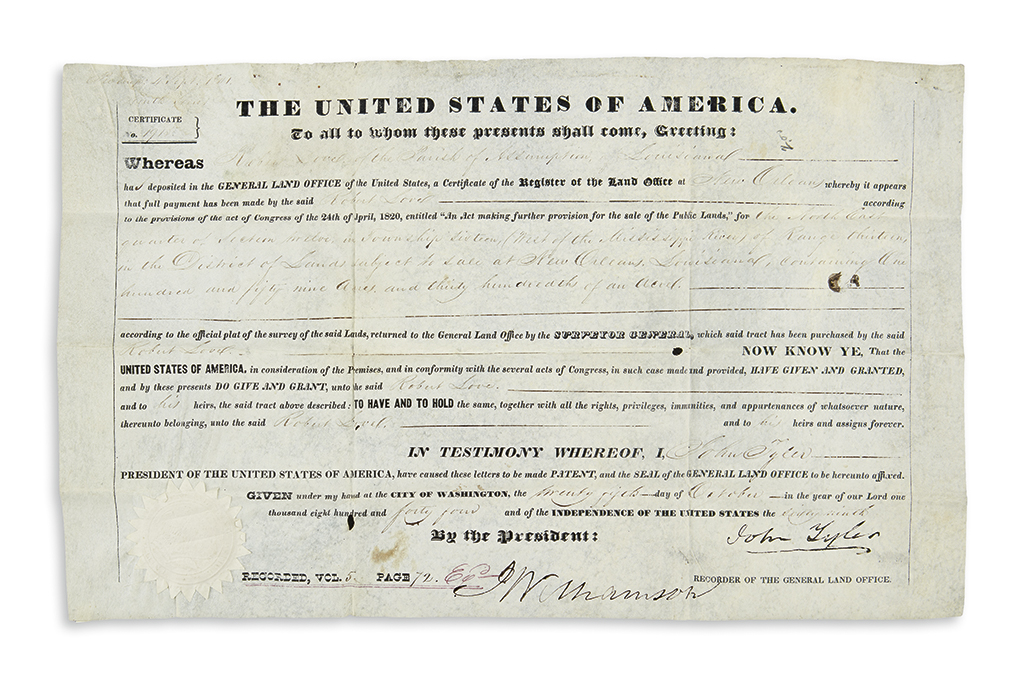 THE UNITED STATES OF AMERICA.
CERTIFICATE
No.
To all to whom these presents shall come, Greeting:
Whereas Robert Love, of the Parish of Assumption, Louisiana
has deposited in the GENERAL LAND OFFICE of the United States, a Certificate of the Register of the Land Office at New Orleans whereby it appears
that full payment has been made by the said Robert Love according
to the provisions of the act of Congress of the 24th of April, 1820, entitled "An Act making further provision for the sale of the Public Lands," for the North East
quarter of Section twelve, in Township Sixteen, (West of the Mississippi River) of Range thirteen,
in the District of Lands subject to sale at New Orleans, Louisiana, containing One
hundred and fifty nine Acres, and thirty hundredths of an Acre.
according to the official plat of the survey of the said Lands, returned to the General Land Office by the SURVEYOR GENERAL, which said tract has been purchased by the said
Robert Love. NOW KNOW YE, That the
UNITED STATES OF AMERICA, in consideration of the Premises, and in conformity with the several acts of Congress, in such case made and provided, HAVE GIVEN AND GRANTED,
and by these presents DO GIVE AND GRANT, unto the said Robert Love.
and to his heirs, the said tract above described: TO HAVE AND TO HOLD the same, together with all the rights, privileges, immunities, and appurtenances of whatsoever nature,
thereunto belonging, unto the said Robert Love. and to his heirs and assigns forever.
IN TESTIMONY WHEREOF, I, John Tyler
PRESIDENT OF THE UNITED STATES OF AMERICA, have caused these letters to be made PATENT, and the SEAL of the GENERAL LAND OFFICE to be hereunto affixed.
GIVEN under my hand at the CITY OF WASHINGTON, the twenty fifth day of October in the year of our Lord one
thousand eight hundred and forty four and of the INDEPENDENCE OF THE UNITED STATES the sixty ninth
By the President: John Tyler
RECORDED, VOL. 5. PAGE 72. RECORDER OF THE GENERAL LAND OFFICE.